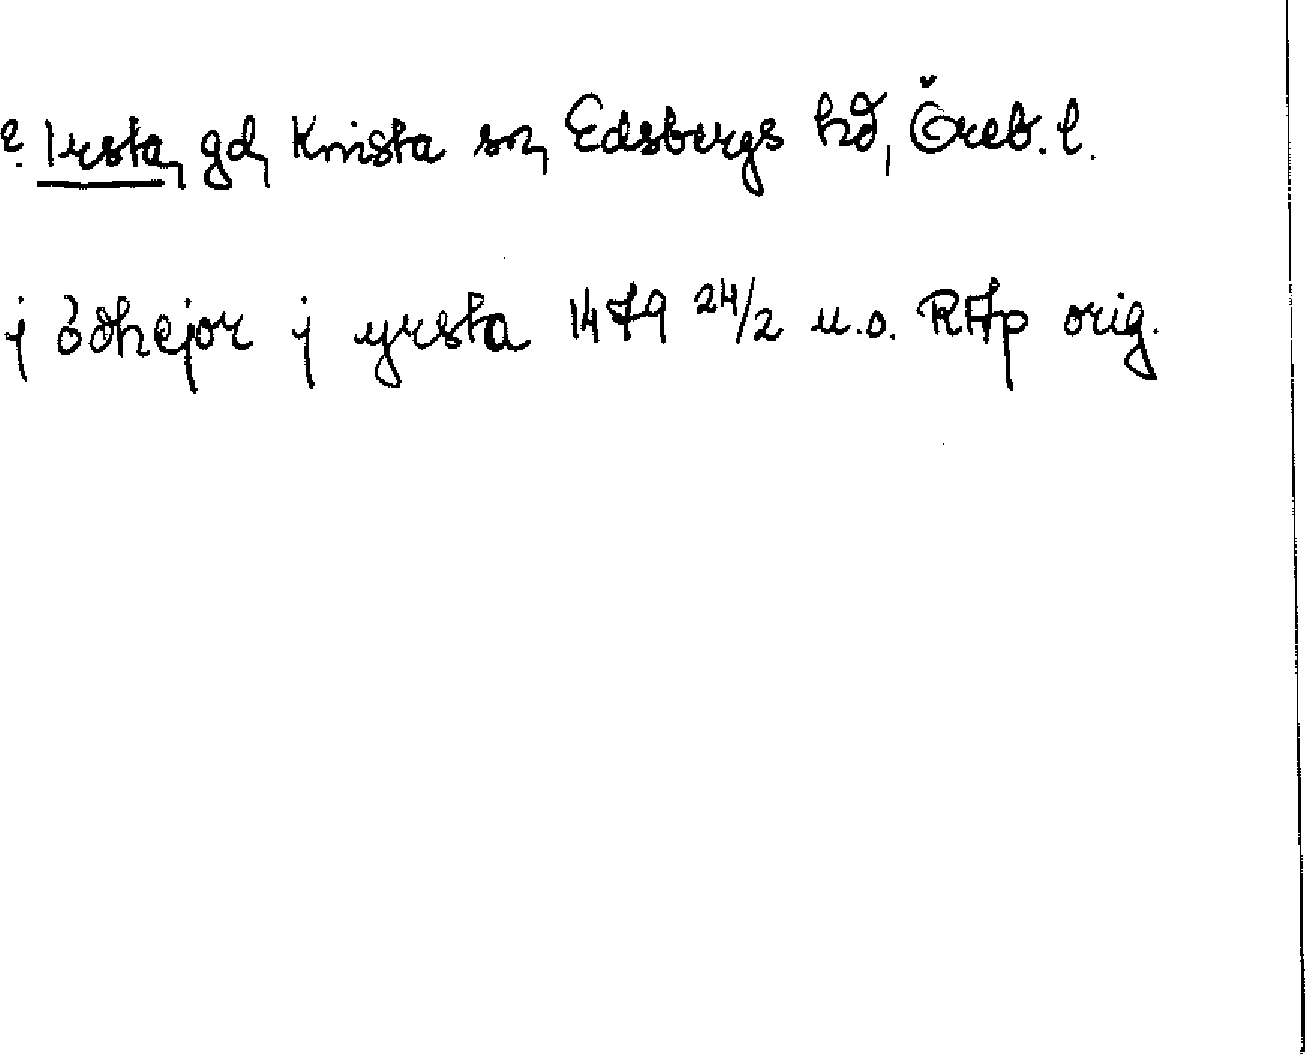 ? Irsta, gd, Knista sn, Edsbergs hd, Öreb. l.
j ödhejor j yrsta 1479 24/2 u.o. RAp orig.